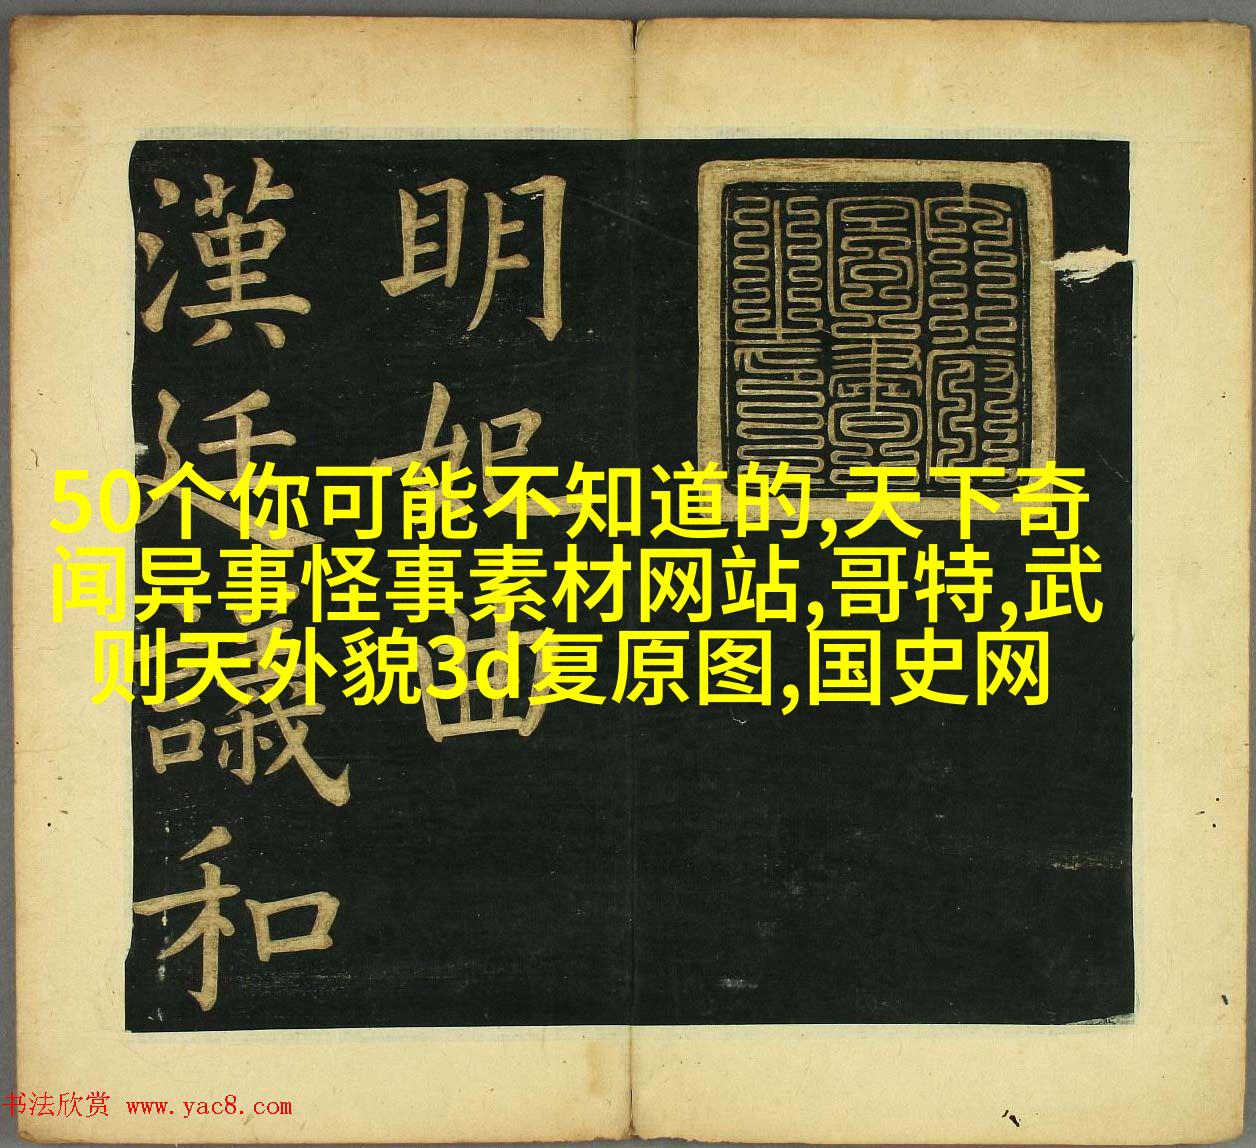 明妃曲
漢廷議和
50个你可能不知道的,天下奇
闻异事怪事素材网站,哥特,武
则天外貌3d复原图,国史网
书法欣赏 www.yac8.com